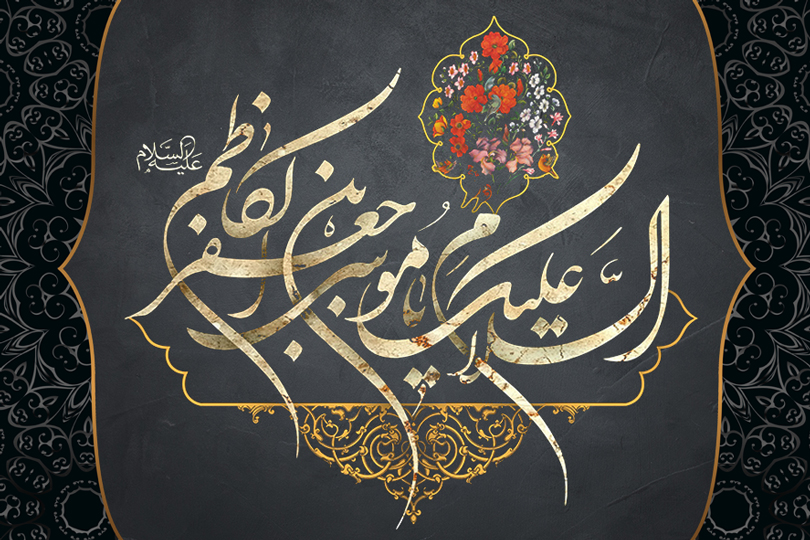 السلام علیک یا موسی بن جعفر الکاظم
علیه السلام